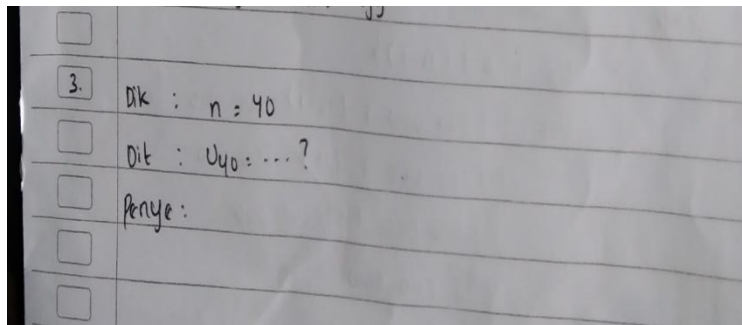 3. Dik : n = 40
Dit : U40 = ... ?
Penye :